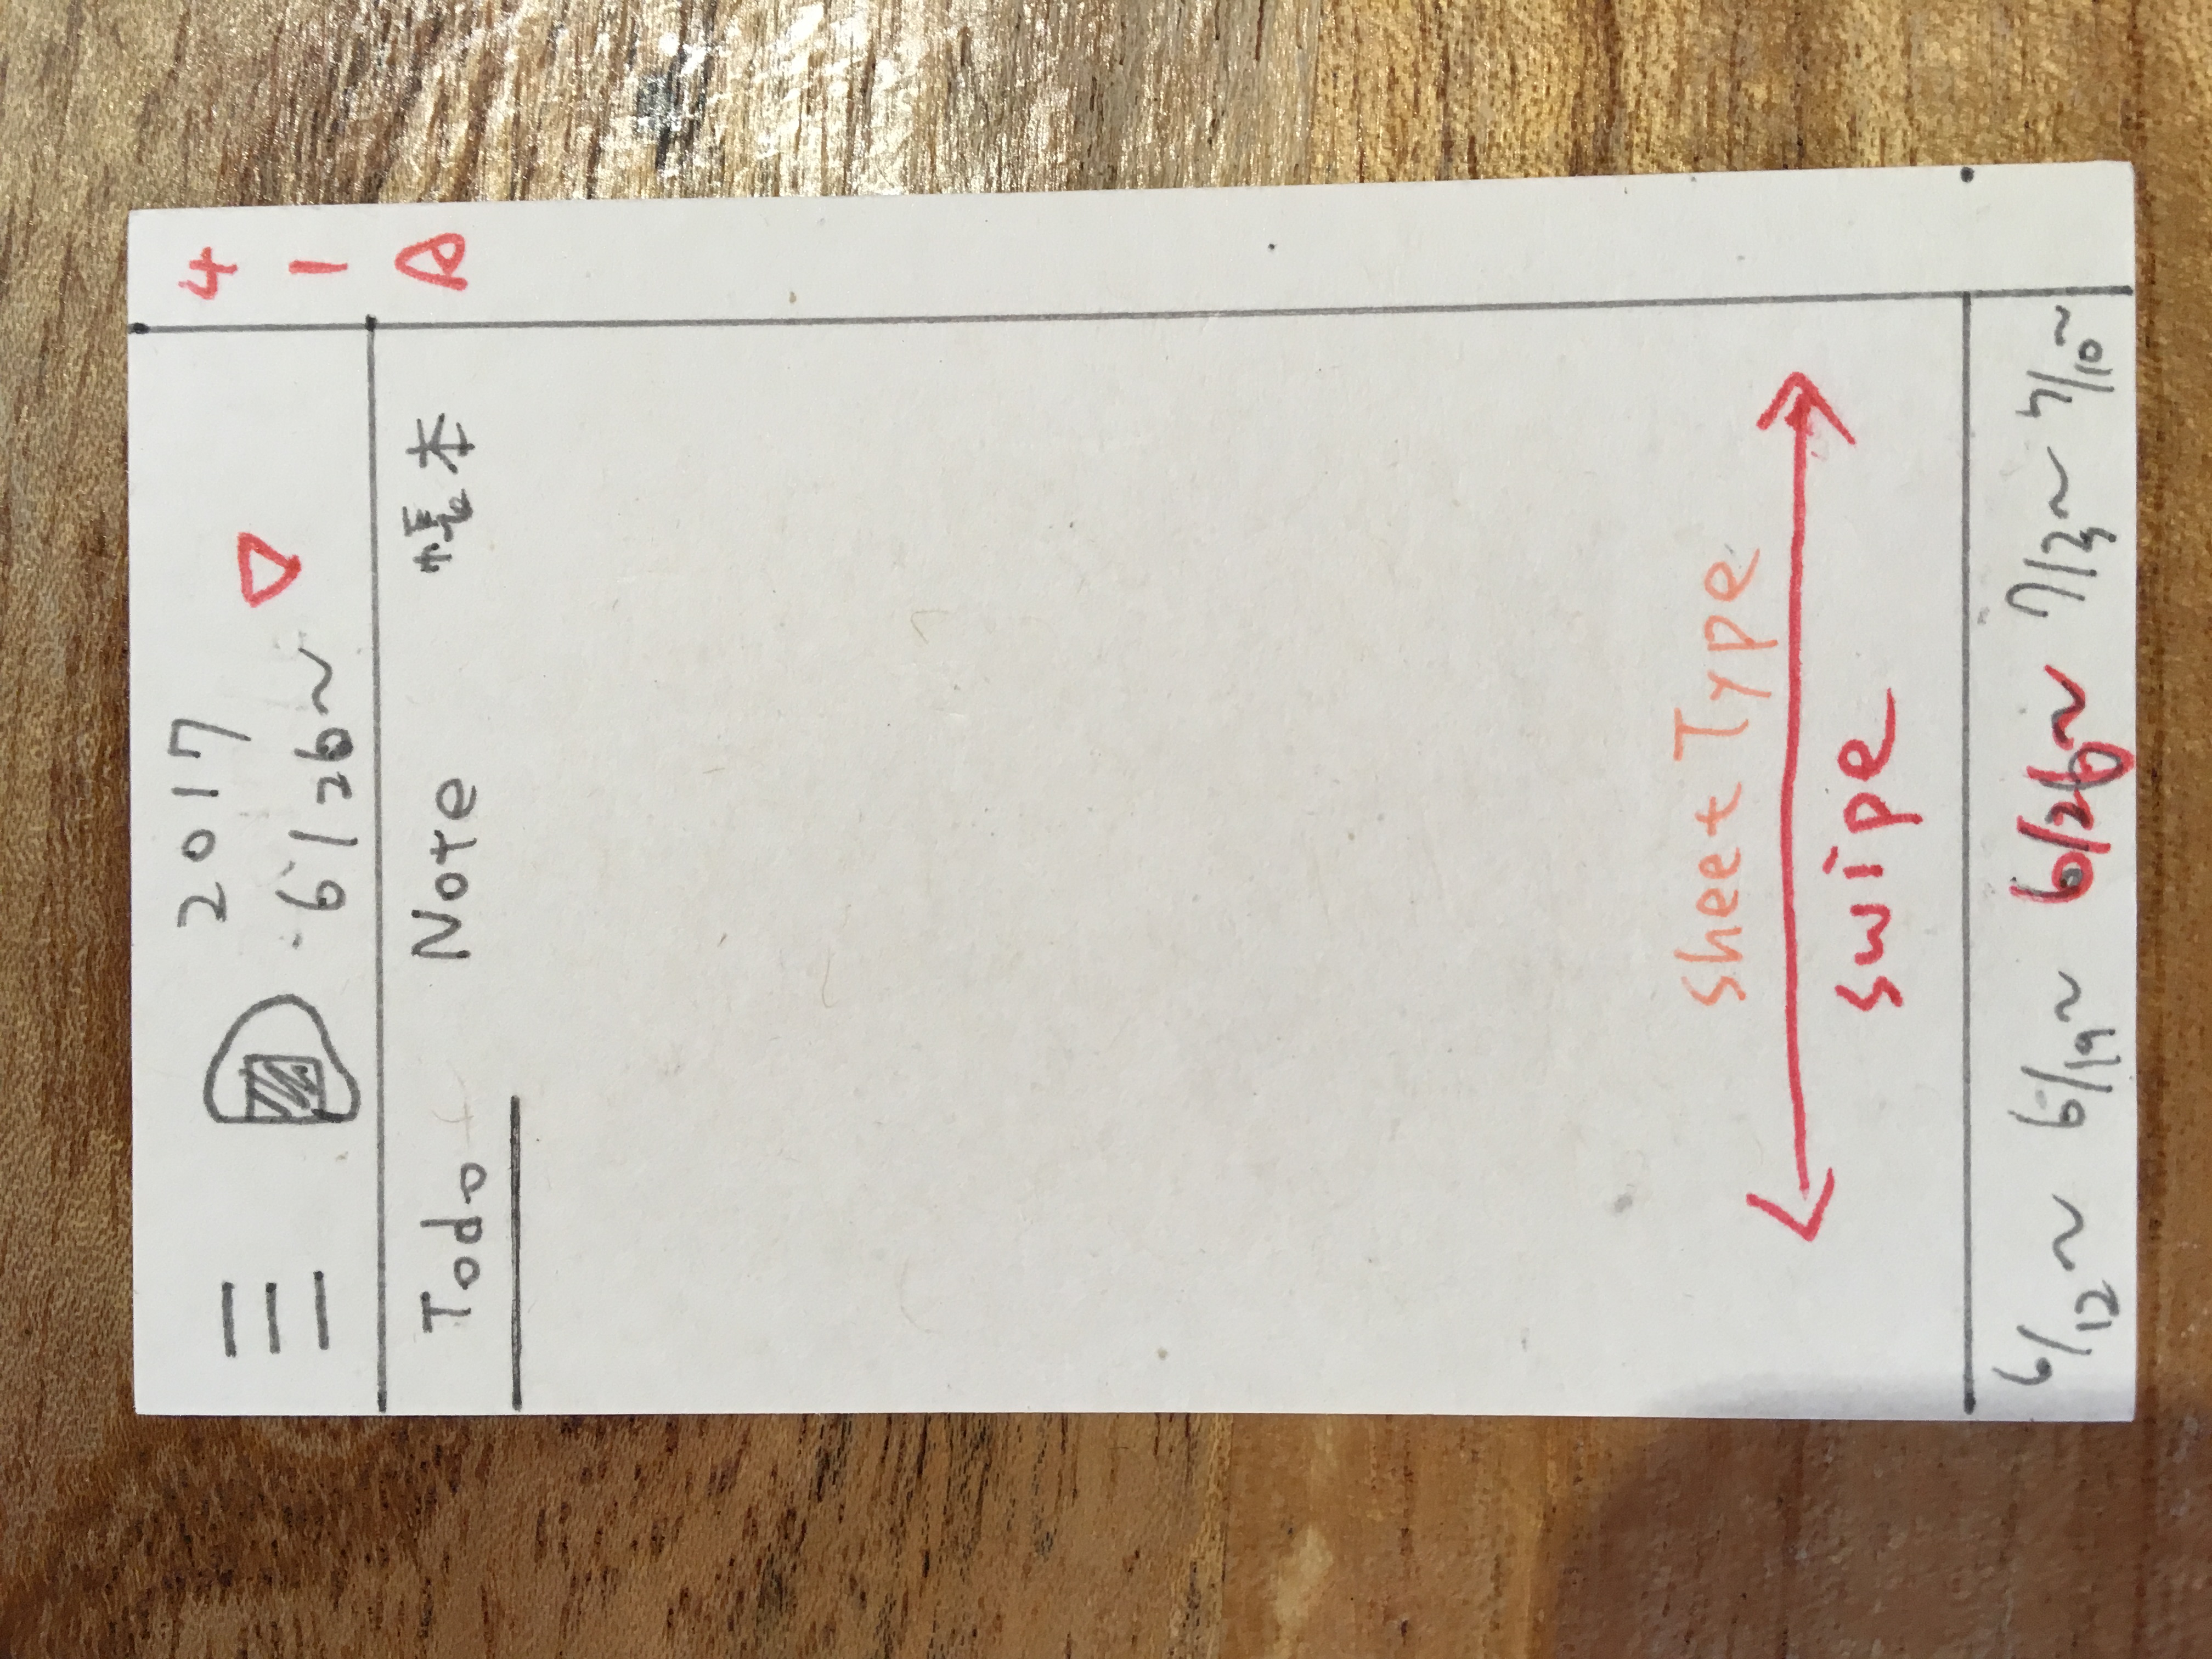 2017
6/26~
4
1
A
Todo Note 帳本
sheetType
swipe
6/12~ 6/19~ 6/26~ 7/3~ 7/10~